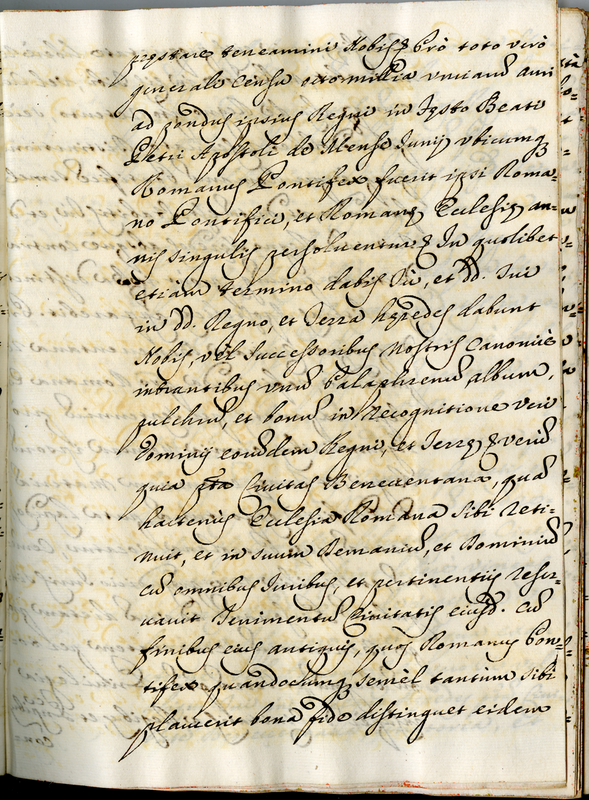 prestare teneamini Nobis & Pro toto verò
generale Censu octomillia unciarũ auri
ad pondus ipsius Regni in Festo Beati
Petri Apostoli de Mense Junij ubicumq
Romanus Pontifex fuerit ipsi Roma=
no Pontifici, et Romanę Ecclesię an=
nis singulis persolventur & In quolibet
etiam termino dabis Tu, et dd. Tui
in dd. Regno, et Terra hęredes dabunt
Nobis, vèl Successoribus nostris Canonicè
intrantibus unũ Palaphrenũ album,
pulchrũ, et bonũ in recognitione veri
dominij eorũdem Regni, et Terrę & verũ
quia pta Civitas Beneventana, quã
hactenùs Ecclesia Romana sibi reti=
nuit, et in suum Demaniũ, et Dominiũ
cũ omnibus Juribus, et pertinentijs reser=
vavit Tenimentũ Civitatis eiusd. cũ
finibus eius antiquis, quos Romanus Pon=
tifex quandocumq semèl tantùm sibi
placuerit bona fide distinguet eidem